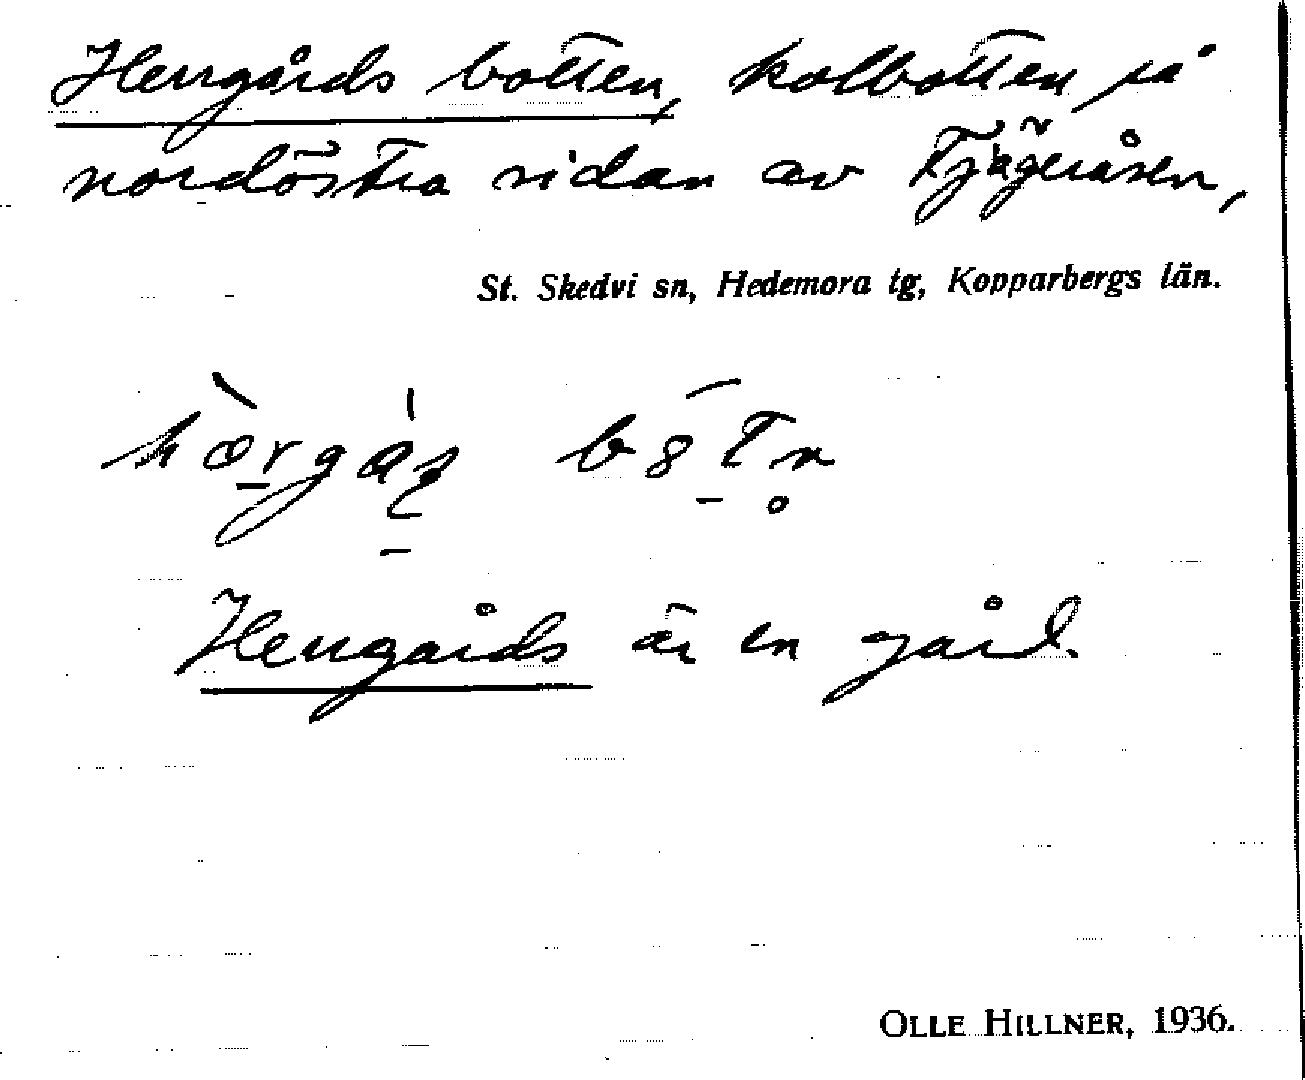 Herrgårds botten, kolbotten på
nordöstra sidan av Tjägeråsen,
St. Skedvi sn, Hedemora tg, Kopparbergs län.
Herrgårds är en gård.
OLLE HILLNER, 1936.